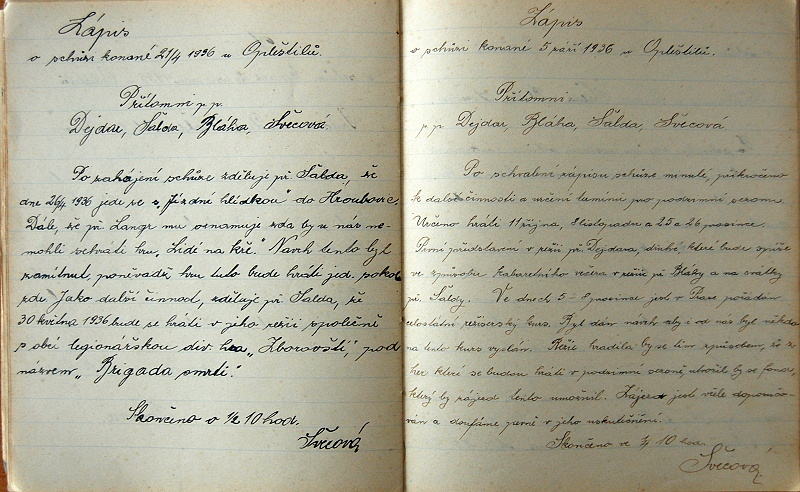 Zápis
o schůzi konané 21/4 1936 u Opleštilů.
Přítomni p.p.
Dejdar, Šalda, Bláha, Švecová
Po zahájení schůze zděluje př. Šalda, že
dne 26/4 1936 jede se s „Jízdní hlídkou" do Hroubovic.
Dále, že př. Langr mu oznamuje zda by u nás ne-
mohli sehráti hru „Lidé na kře." Návrh tento byl
zamítnut, poněvadž hru tuto bude hráti jed. pokol
zde. Jako další činnost, zděluje př. Šalda, že
30 května 1936 bude se hráti v jeho režii společně
s obcí legionářskou div. hra „Zborovští", pod
názvem „Brigada smrti."
Skončeno o 1/2 10 hod.
Švecová
Zápis
o schůzi konané 5 září 1936 u Opleštilů.
Přítomni:
p.p. Dejdar, Bláha, Šalda, Švecová
Po schválení zápisu schůze minulé, přikročeno
k další činnosti a určení termínů pro podzimní sezonu.
Určeno hráti 11 října, 8 listopadu a 25 a 26 prosince.
První představení v režii př. Dejdara, druhé, které bude spíše
ve způsobu kabaretního večera v režii př. Bláhy a na svátky
př. Šaldy. Ve dnech 5-8 prosince jest v Praze pořádán
celostátní režisérský kurs. Byl dán návrh aby i od nás byl někdo
na tento kurs vyslán. Režie hradila by se tím způsobem, že z
her které se budou hráti v podzimní sezoně, utvořil by se fond,
který by zájezd tento umožnil. Zájezd jest vřele doporučo-
ván a doufáme pevně v jeho uskutečnění.
Skončeno ve 3/4 10 hod.
Švecová